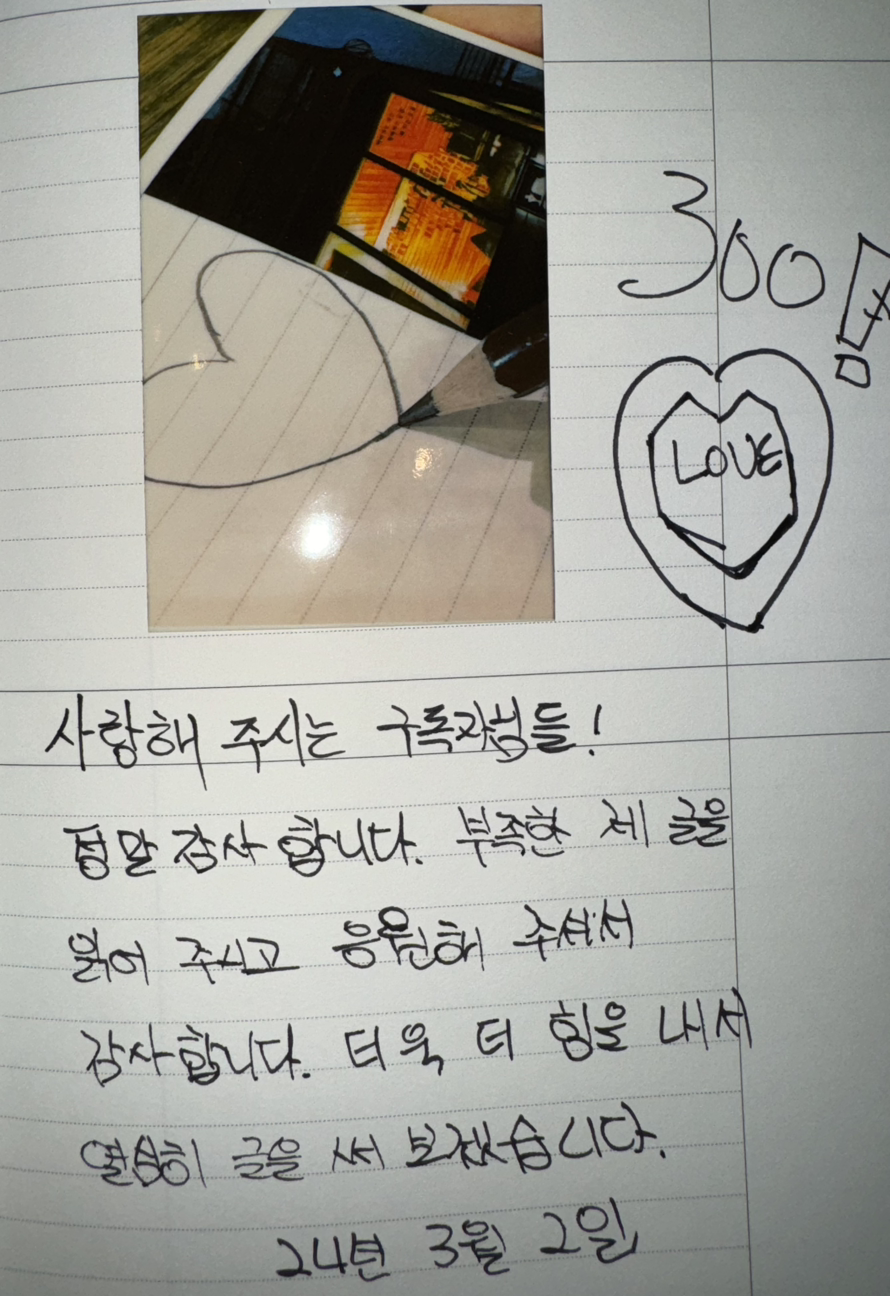 300!
LOVE
사랑해 주시는 구독자님들!
정말 감사 합니다. 부족한 제 글을
읽어 주시고 응원해 주셔서
감사합니다. 더욱 더 힘을 내서
열심히 글을 써 보겠습니다.
24년 3월 2일